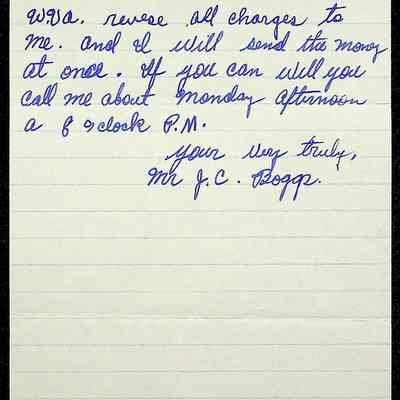 WVa. revese all charges to
me. and I will send the money
at once. If you can will you
call me about Monday afternoon
a 8 o'clock P.M.
your very truly,
Mr J.C. Boggs.